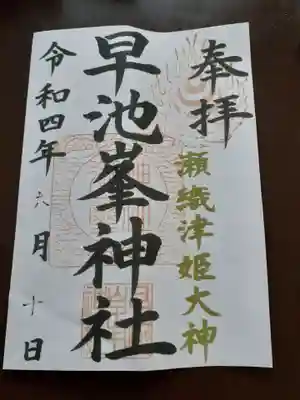 奉拝
瀬織津姫大神
早池峯神社
令和四年六月十日